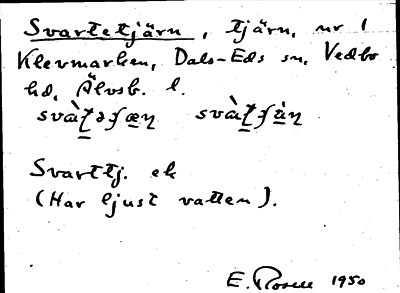 Svartetjärn, tjärn, nr 1
Klevmarken, Dals-Eds sn, Vedbo
hd, Älvsb. l.
Svarttj. ek
(Har ljust vatten).
E. Rosell 1950